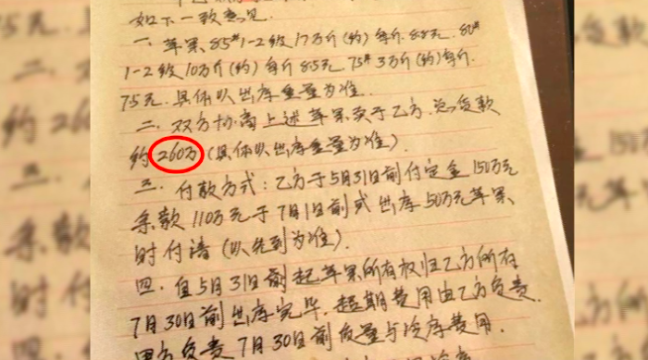 如下一致意见.
一.苹果85#1-2级17万斤(约)每斤.8.8元.80#
1-2级10万斤(约)每斤8.5元.75#3万斤(约)每斤.
7.5元.具体以出库重量为准.
二.双方协商上述苹果卖于乙方.总货款
约260万(具体以出库重量为准).
三.付款方式:乙方于5月31日前付定金150万元
余款110万元于7月1日前或出库50万元苹果
时付清(以先到为准).
四.自5月31日前起苹果所有权归乙方所有
7月30日前出库完毕.超期费用由乙方负责.
甲方负责7月30日前质量与冷库费用.